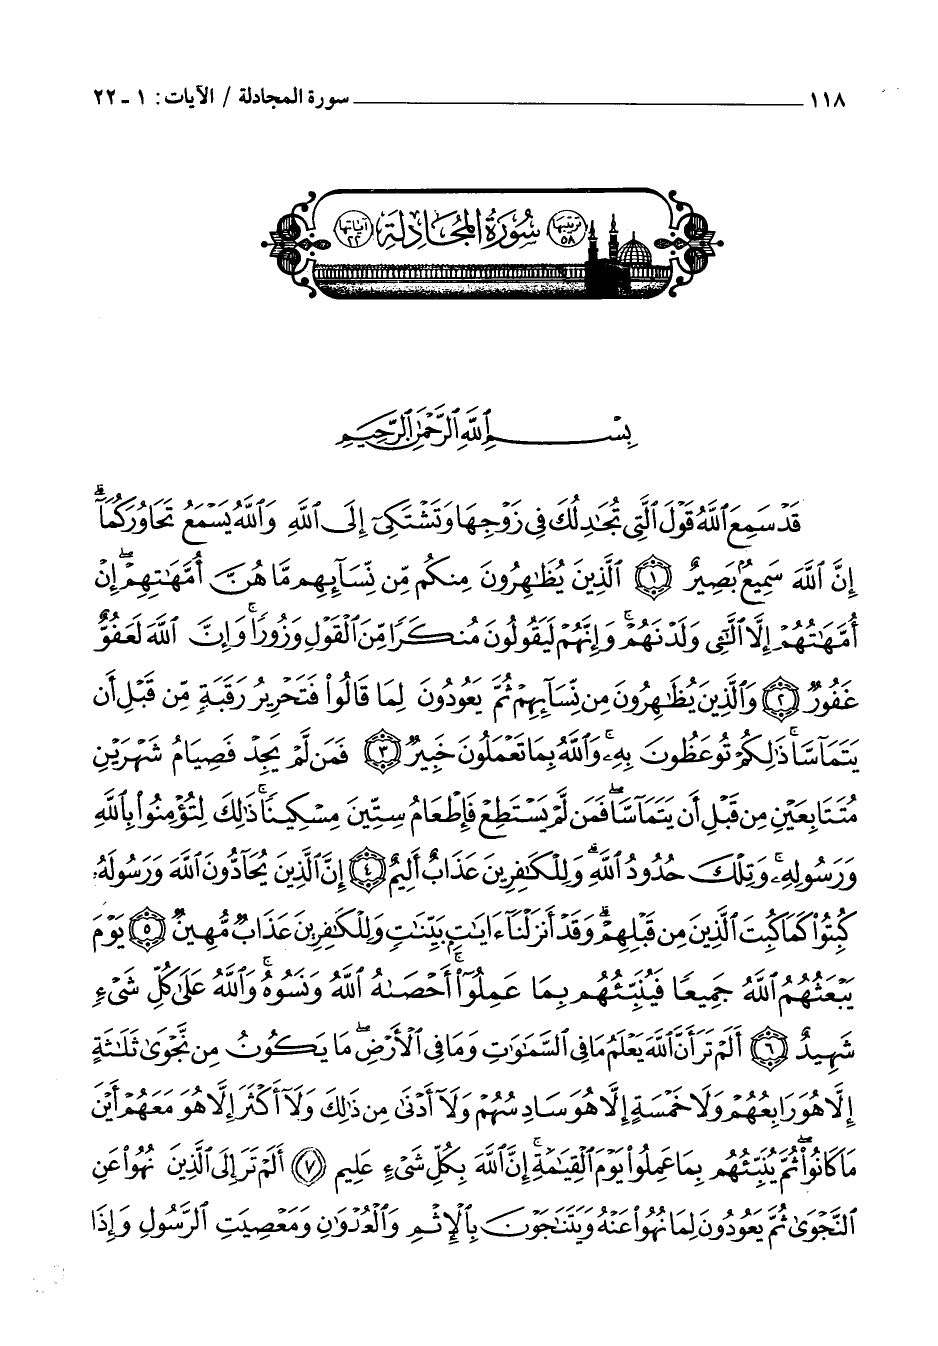 ١١٨ سورة المجادلة / الآيات: ١ ـ ٢٢
ترتيبها ٥٨ سُورَةُ المُجَادلَة آياتها ٢٢
بِسْمِ ٱللَّهِ ٱلرَّحْمَٰنِ ٱلرَّحِيمِ
قَدْ سَمِعَ ٱللَّهُ قَوْلَ ٱلَّتِى تُجَٰدِلُكَ فِى زَوْجِهَا وَتَشْتَكِىٓ إِلَى ٱللَّهِ وَٱللَّهُ يَسْمَعُ تَحَاوُرَكُمَآۚ
إِنَّ ٱللَّهَ سَمِيعٌۢ بَصِيرٌ ۝١ ٱلَّذِينَ يُظَٰهِرُونَ مِنكُم مِّن نِّسَآئِهِم مَّا هُنَّ أُمَّهَٰتِهِمْۖ إِنْ
أُمَّهَٰتُهُمْ إِلَّا ٱلَّٰٓـِٔى وَلَدْنَهُمْۚ وَإِنَّهُمْ لَيَقُولُونَ مُنكَرًا مِّنَ ٱلْقَوْلِ وَزُورًاۚ وَإِنَّ ٱللَّهَ لَعَفُوٌّ
غَفُورٌ ۝٢ وَٱلَّذِينَ يُظَٰهِرُونَ مِن نِّسَآئِهِمْ ثُمَّ يَعُودُونَ لِمَا قَالُوا۟ فَتَحْرِيرُ رَقَبَةٍ مِّن قَبْلِ أَن
يَتَمَآسَّاۚ ذَٰلِكُمْ تُوعَظُونَ بِهِۦۚ وَٱللَّهُ بِمَا تَعْمَلُونَ خَبِيرٌ ۝٣ فَمَن لَّمْ يَجِدْ فَصِيَامُ شَهْرَيْنِ
مُتَتَابِعَيْنِ مِن قَبْلِ أَن يَتَمَآسَّاۖ فَمَن لَّمْ يَسْتَطِعْ فَإِطْعَامُ سِتِّينَ مِسْكِينًاۚ ذَٰلِكَ لِتُؤْمِنُوا۟ بِٱللَّهِ
وَرَسُولِهِۦۚ وَتِلْكَ حُدُودُ ٱللَّهِۗ وَلِلْكَٰفِرِينَ عَذَابٌ أَلِيمٌ ۝٤ إِنَّ ٱلَّذِينَ يُحَآدُّونَ ٱللَّهَ وَرَسُولَهُۥ
كُبِتُوا۟ كَمَا كُبِتَ ٱلَّذِينَ مِن قَبْلِهِمْۚ وَقَدْ أَنزَلْنَآ ءَايَٰتٍۭ بَيِّنَٰتٍۚ وَلِلْكَٰفِرِينَ عَذَابٌ مُّهِينٌ ۝٥ يَوْمَ
يَبْعَثُهُمُ ٱللَّهُ جَمِيعًا فَيُنَبِّئُهُم بِمَا عَمِلُوٓا۟ۚ أَحْصَىٰهُ ٱللَّهُ وَنَسُوهُۚ وَٱللَّهُ عَلَىٰ كُلِّ شَىْءٍ
شَهِيدٌ ۝٦ أَلَمْ تَرَ أَنَّ ٱللَّهَ يَعْلَمُ مَا فِى ٱلسَّمَٰوَٰتِ وَمَا فِى ٱلْأَرْضِۖ مَا يَكُونُ مِن نَّجْوَىٰ ثَلَٰثَةٍ
إِلَّا هُوَ رَابِعُهُمْ وَلَا خَمْسَةٍ إِلَّا هُوَ سَادِسُهُمْ وَلَآ أَدْنَىٰ مِن ذَٰلِكَ وَلَآ أَكْثَرَ إِلَّا هُوَ مَعَهُمْ أَيْنَ
مَا كَانُوا۟ۖ ثُمَّ يُنَبِّئُهُم بِمَا عَمِلُوا۟ يَوْمَ ٱلْقِيَٰمَةِۚ إِنَّ ٱللَّهَ بِكُلِّ شَىْءٍ عَلِيمٌ ۝٧ أَلَمْ تَرَ إِلَى ٱلَّذِينَ نُهُوا۟ عَنِ
ٱلنَّجْوَىٰ ثُمَّ يَعُودُونَ لِمَا نُهُوا۟ عَنْهُ وَيَتَنَٰجَوْنَ بِٱلْإِثْمِ وَٱلْعُدْوَٰنِ وَمَعْصِيَتِ ٱلرَّسُولِ وَإِذَا